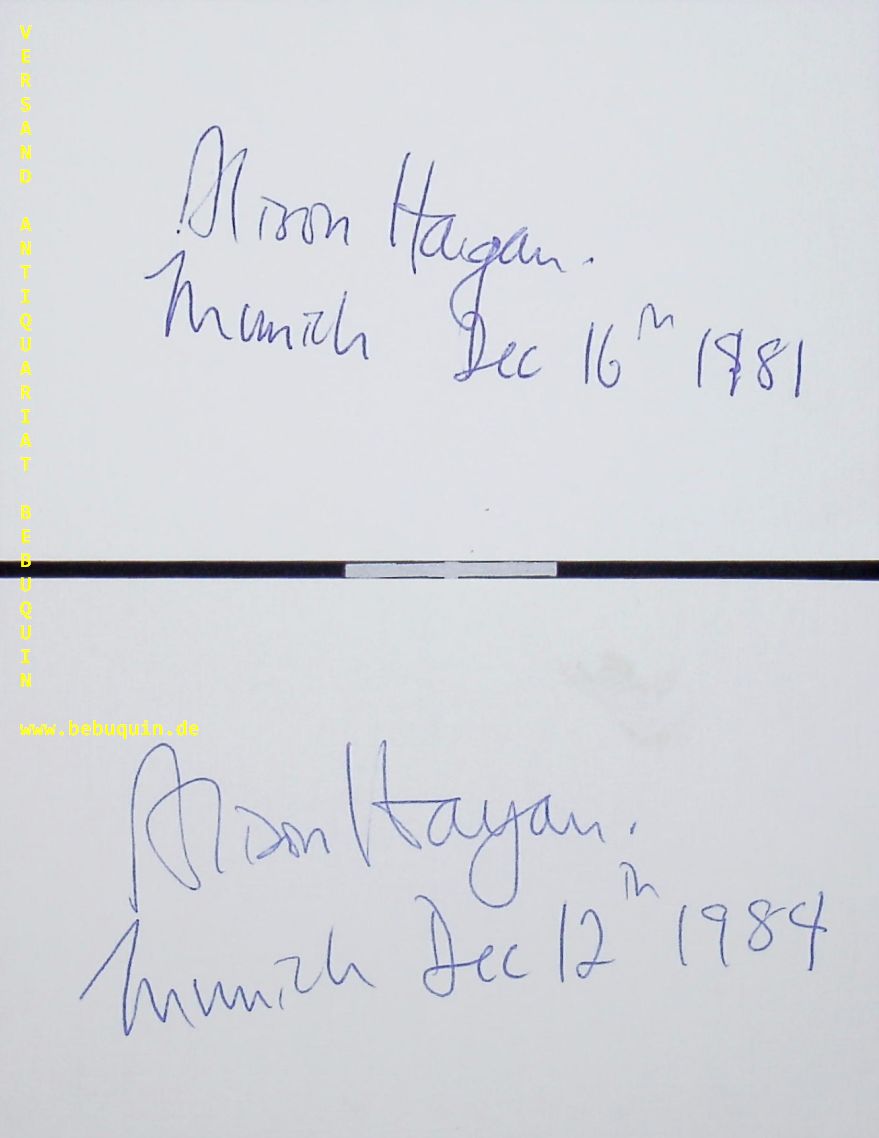 VERSAND ANTIQUARIAT BEBUQUIN
Alison Hargan.
Munich Dec 16th 1981
www.bebuquin.de
Alison Hargan.
Munich Dec 12th 1984